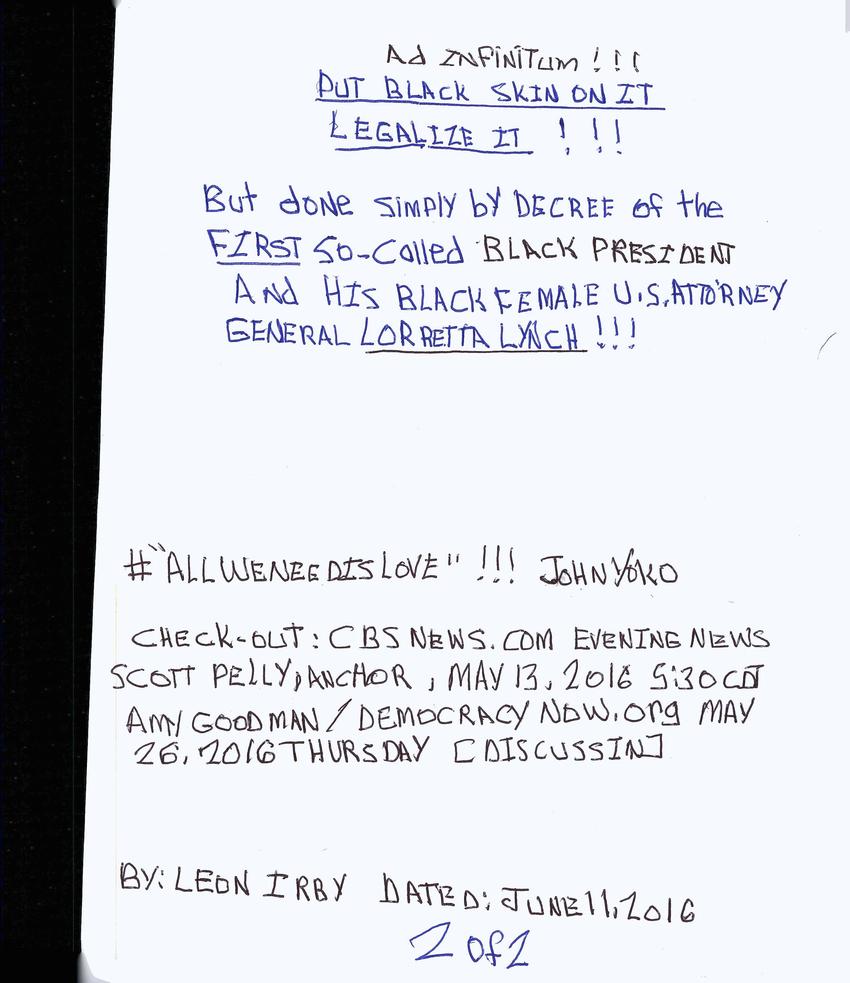 Ad INFiNiTum ! ! !
PUT BLACK SKIN ON IT
LEGALIZE IT ! ! !
But doNe SiMPlY bY DECREE of the
FIRST SO-Called BLACK PRESIDENT
ANd HIS BLACK FEMALE U.S. ATTORNEY
GENERAL LORRETTA LYNCH !!!
#"ALLWENEEDISLOVE" !!! JOHNYOKO
CHECK-OUT: CBS NEWS.COM EVENING NEWS
SCOTT PELLY, ANCHOR, MAY 13, 2016 5:30 CDT
AMY GOODMAN / DEMOCRACY NOW.Org MAY
26, 2016 THURSDAY [DISCUSSIN]
BY: LEON IRBY DATED: JUNE 11, 2016
2 of 2